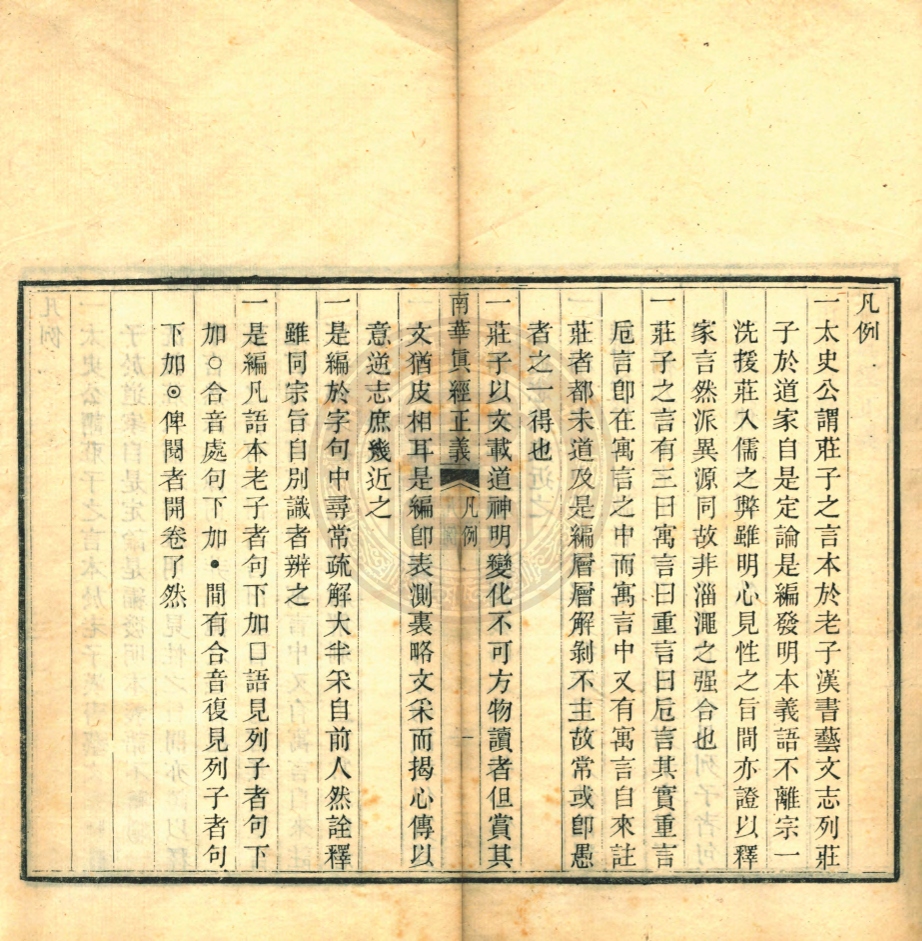 凡例
一太史公謂莊子之言本於老子漢書藝文志列莊
子於道家自是定論是編發明本義語不離宗一
洗援莊入儒之弊雖明心見性之旨間亦證以釋
家言然派異源同故非淄澠之强合也
一莊子之言有三曰寓言曰重言曰卮言其實重言
卮言卽在寓言之中而寓言中又有寓言自來註
莊者都未道及是編層層解剝不主故常或卽愚
者之一得也
南華眞經正義 凡例 一
一莊子以文載道神明變化不可方物讀者但賞其
文猶皮相耳是編卽表測裏略文采而揭心傳以
意逆志庶幾近之
一是編於字句中尋常疏解大半采自前人然詮釋
雖同宗旨自別識者辨之
一是編凡語本老子者句下加口語見列子者句下
加○合音處句下加●間有合音復見列子者句
下加⊙俾閱者開卷了然